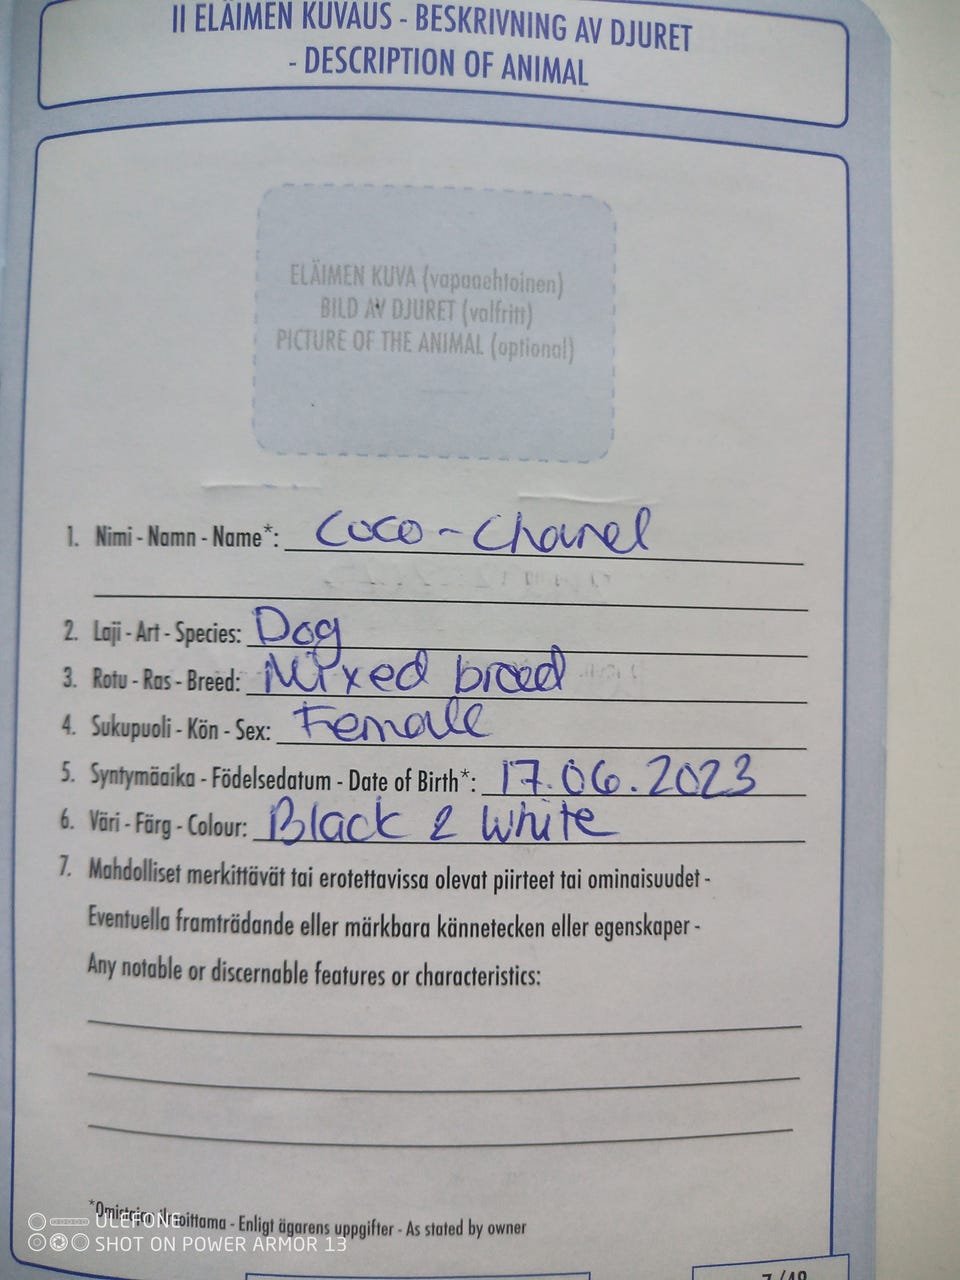 II ELÄIMEN KUVAUS - BESKRIVNING AV DJURET
- DESCRIPTION OF ANIMAL
ELÄIMEN KUVA (vapaaehtoinen)
BILD AV DJURET (valfritt)
PICTURE OF THE ANIMAL (optional)
1. Nimi - Namn - Name*: Coco - Chanel
2. Laji - Art - Species: Dog
3. Rotu - Ras - Breed: Mixed breed
4. Sukupuoli - Kön - Sex: Female
5. Syntymäaika - Födelsedatum - Date of Birth*: 17.06.2023
6. Väri - Färg - Colour: Black & White
7. Mahdolliset merkittävät tai erotettavissa olevat piirteet tai ominaisuudet -
Eventuella framträdande eller märkbara kännetecken eller egenskaper -
Any notable or discernable features or characteristics:
*Omistajan ilmoittama - Enligt ägarens uppgifter - As stated by owner
ULEFONE
SHOT ON POWER ARMOR 13
7/48